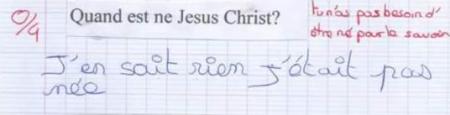 0/4
Quand est ne Jesus Christ?
tu n'as pas besoin d'
être né pour le savoir
J'en sait rien j'était pas
née